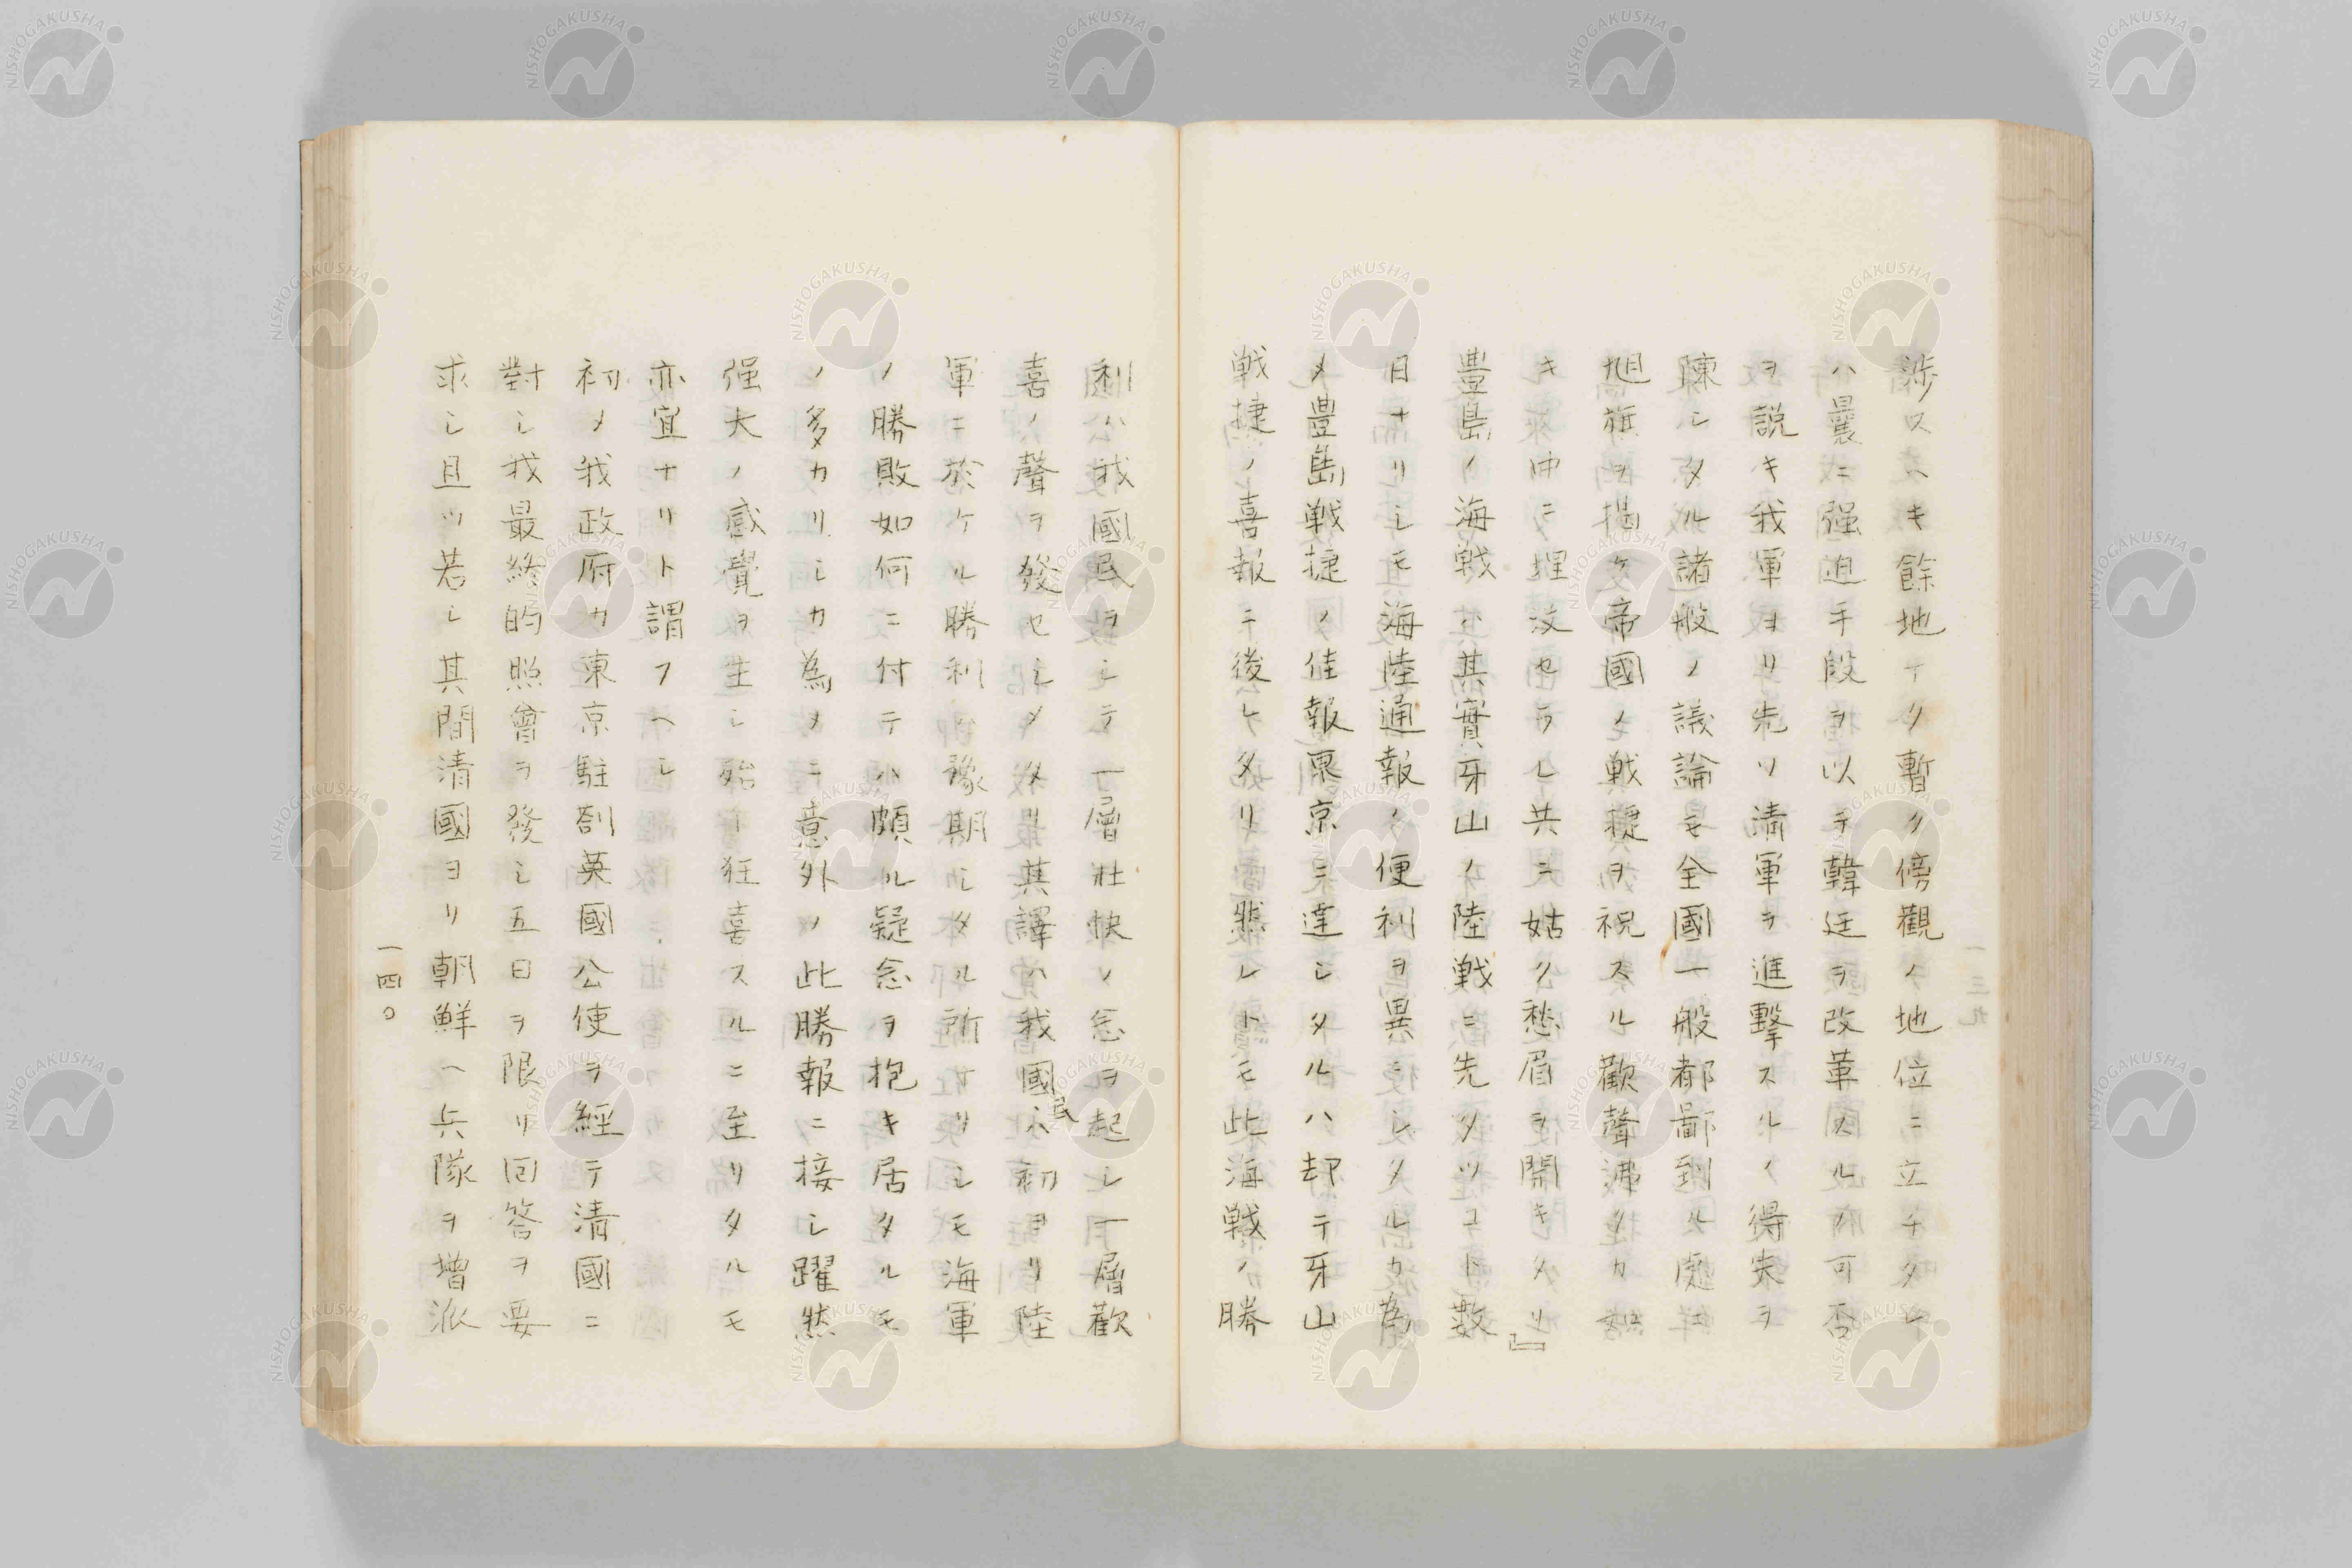 渉スヘキ餘地ナク暫ク傍觀ノ地位ニ立チタレ
ハ曩ニ强迫手段ヲ以テ韓廷ヲ改革スルノ可否
ヲ説キ我軍ヨリ先ツ清軍ヲ進擊スルノ得失ヲ
陳シタル諸般ノ議論モ全國一般都鄙到ル處ニ
旭旗ヲ掲ケ帝國ノ戦捷ヲ祝スル歡聲沸クカ如
キ中ニ埋沒セラレ共ニ姑ク愁眉ヲ開キタリ』
豊島ノ海戦ハ其實牙山ノ陸戦ニ先タツコト數
日ナリシモ海陸通報ノ便利ヲ異ニシタルカ為
メ豊島戦捷ノ佳報東京ニ達シタルハ却テ牙山
戦捷ノ喜報ニ後レタリ然レトモ此海戦ノ勝
利ハ我國民ヲシテ一層壯快ノ念ヲ起シ一層歡
喜ノ聲ヲ發セシメタリ其譯ハ我國民ハ初ヨリ陸
軍ニ於ケル勝利ハ豫期シタル所ナリシモ海軍
ノ勝敗如何ニ付テハ頗ル疑念ヲ抱キ居タルモ
ノ多カリシカ為メニ意外ノ此勝報ニ接シ躍然
强大ノ感覺ヲ生シ殆ト狂喜スルニ至リタルモ
亦宜ナリト謂フヘシ
初メ我政府カ東京駐劄英國公使ヲ經テ清國ニ
對シ我最終的照會ヲ發シ五日ヲ限リ回答ヲ要
求シ且ツ若シ其間清國ヨリ朝鮮ヘ兵隊ヲ増派
一四〇
NISHOGAKUSHA